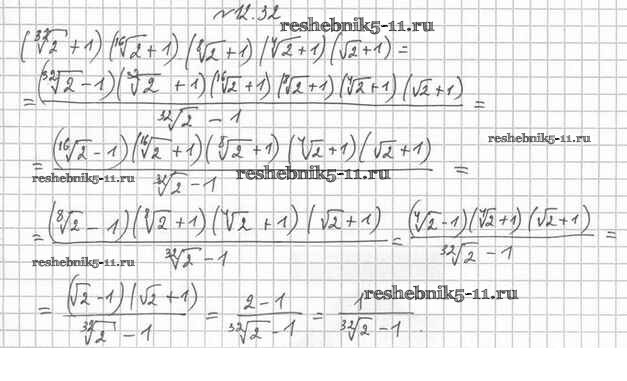 №12.32
reshebnik5-11.ru
(³²√2 + 1) (¹⁶√2 + 1) (⁸√2 + 1) (⁴√2 + 1) (√2 + 1) =
= (³²√2 - 1) (³²√2 + 1) (¹⁶√2 + 1) (⁸√2 + 1) (⁴√2 + 1) (√2 + 1) / ³²√2 - 1 =
reshebnik5-11.ru
= (¹⁶√2 - 1) (¹⁶√2 + 1) (⁸√2 + 1) (⁴√2 + 1) (√2 + 1) / ³²√2 - 1 =
reshebnik5-11.ru
reshebnik5-11.ru
= (⁸√2 - 1) (⁸√2 + 1) (⁴√2 + 1) (√2 + 1) / ³²√2 - 1 = (⁴√2 - 1) (⁴√2 + 1) (√2 + 1) / ³²√2 - 1 =
reshebnik5-11.ru
= (√2 - 1) (√2 + 1) / ³²√2 - 1 = 2 - 1 / ³²√2 - 1 = 1 / ³²√2 - 1 .
reshebnik5-11.ru